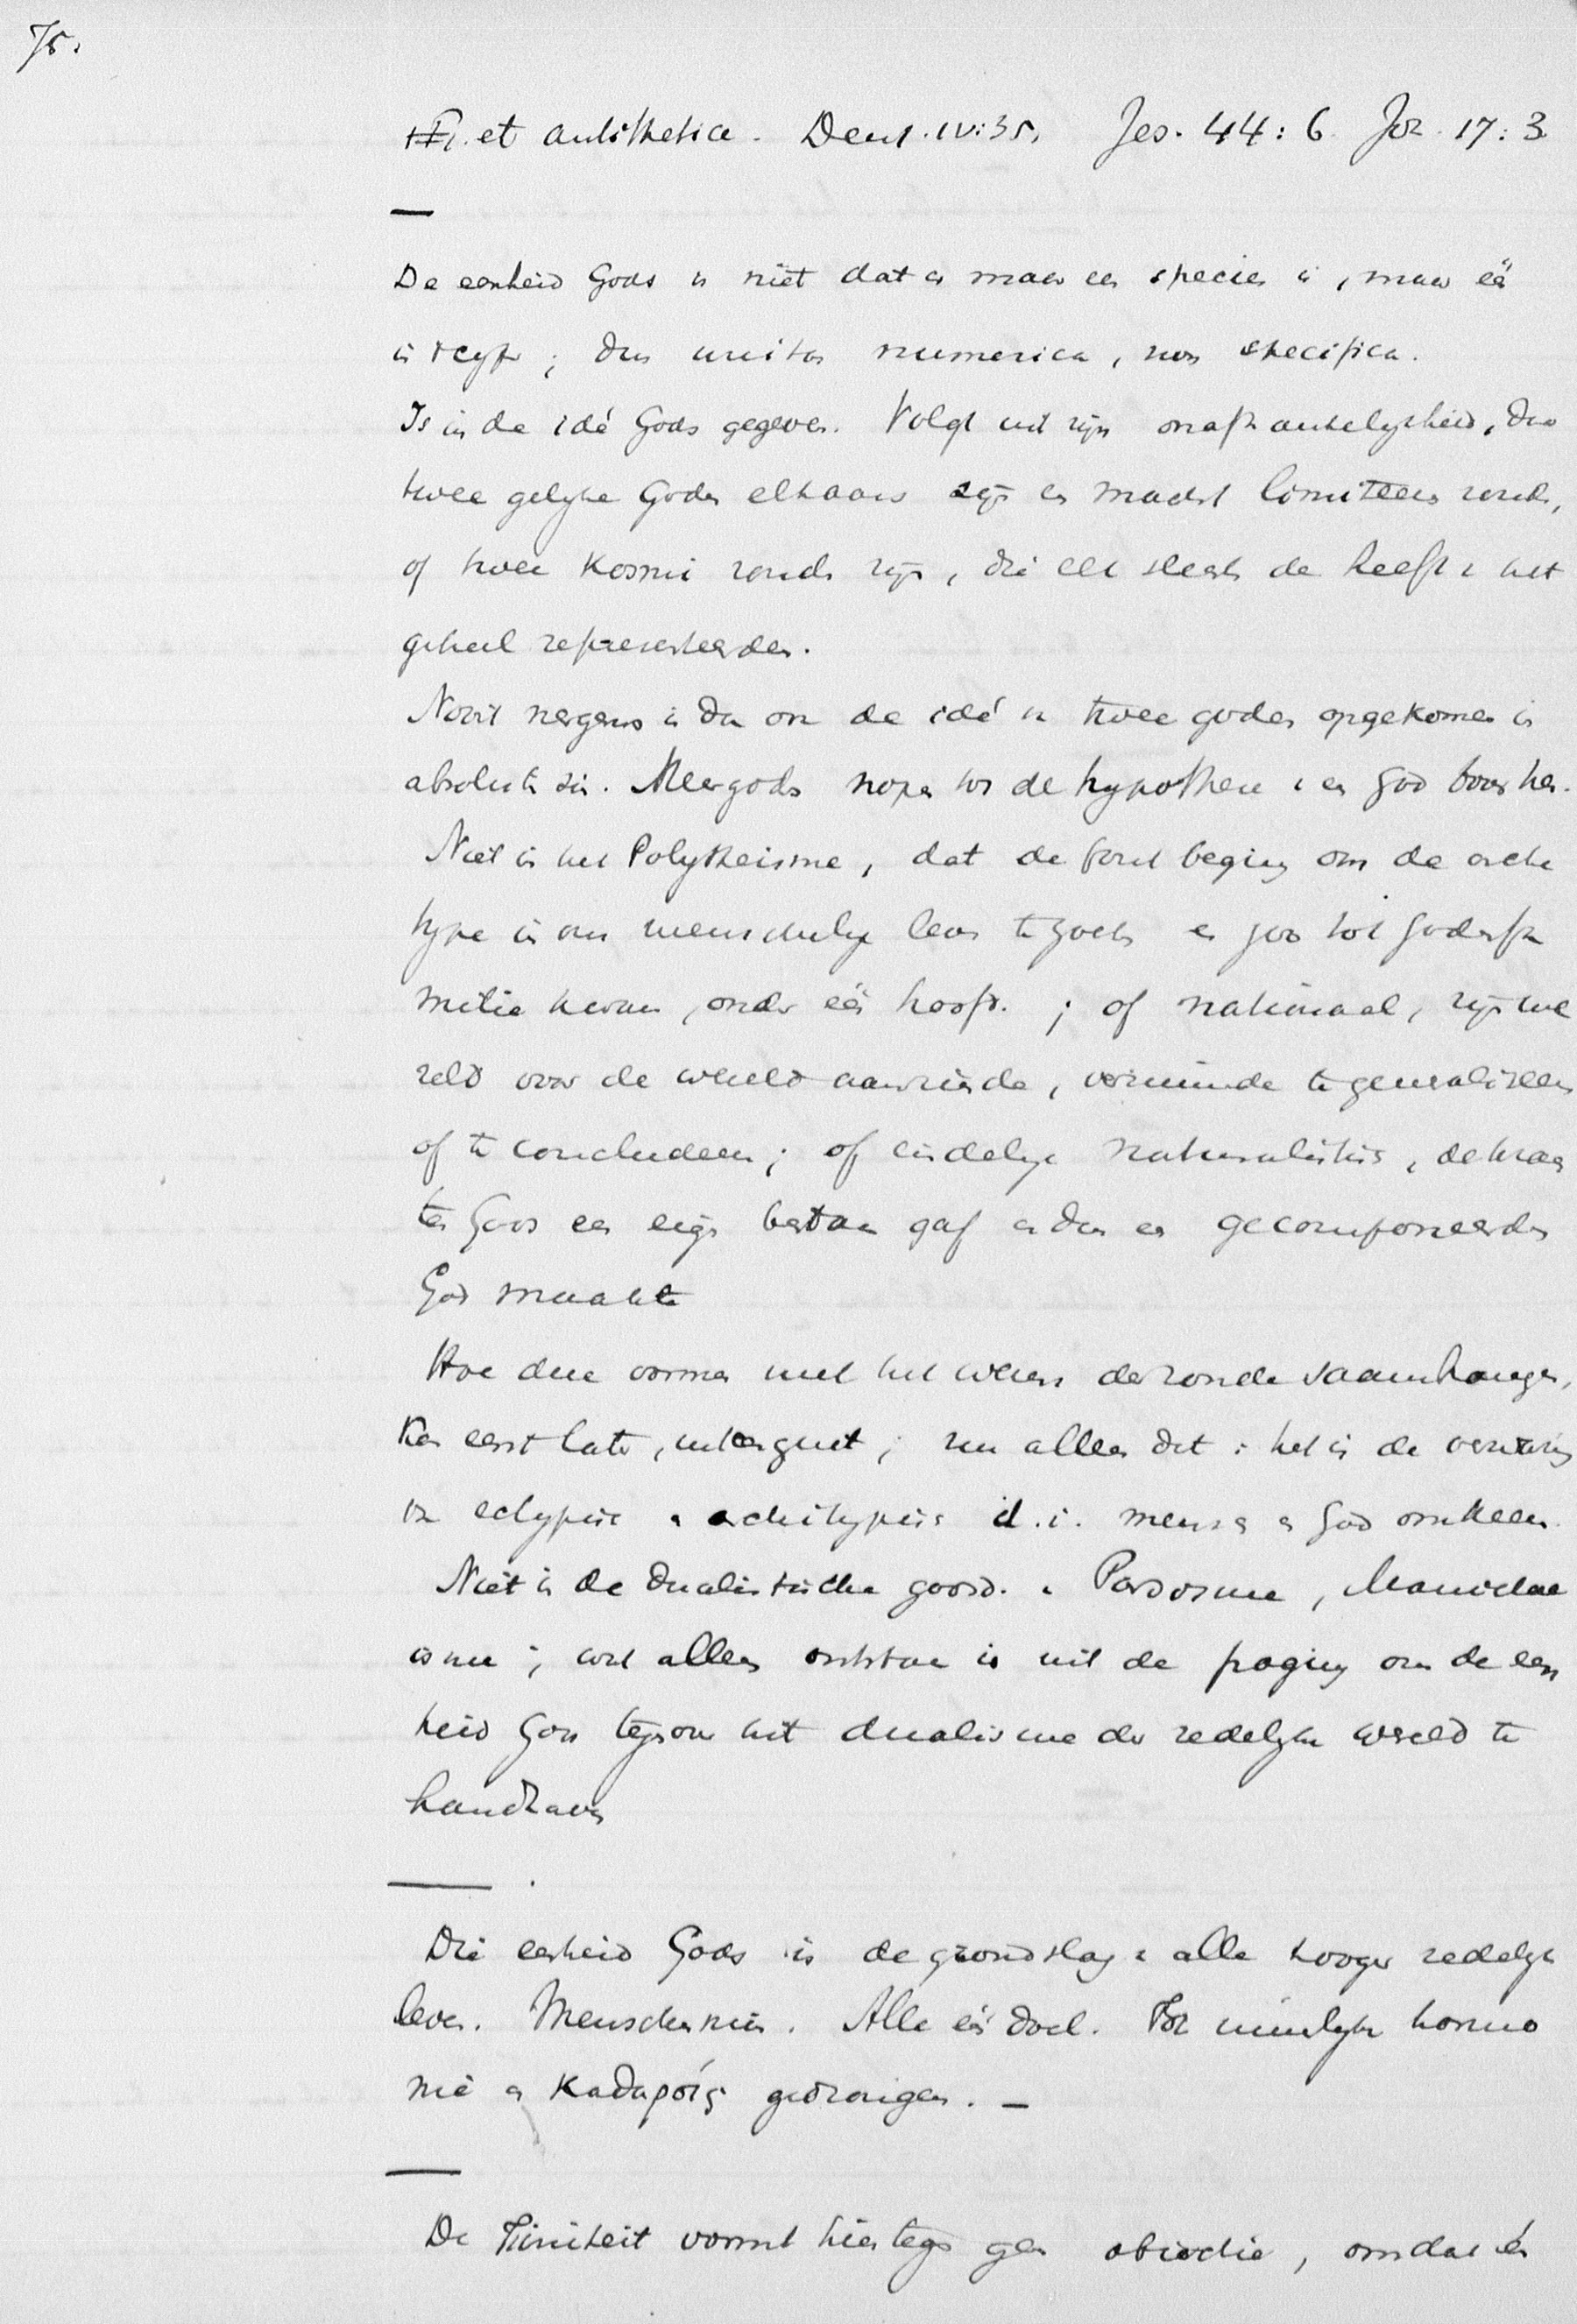 75.
et antithetica. Deut. IV:35, Jes. 44:6. Joh. 17:3
De eenheid Gods is niet dat er maar een species is, maar één
is ; dus unitas numerica, non specifica.
Is in de idé Gods gegeven. Volgt uit zijn onafhankelykheid, daar
twee gelyke Goden elkaars zijn en macht limiteren zouden,
of twee Kosmi zouden zijn, die elk slechts de helft v het
geheel representeerden.
Nooit nergens is dan ook de idé v twee goden opgekomen in
absoluten zin. Meer goden nopen tot de hypothese v een God boven hen.
Niet in het Polytheisme, dat de fout beging om de arche
type in ons menschelyk leven te zoeken en zoo tot Godenfa
milie kwam, onder één hoofd. ; of nationaal, zijn we
reld voor de wereld aanziende, verzuimde te generaliseeren
of te concludeeren; of eindelyk naturalistisch, de krach
ten Gods een eigen bestaan gaf en dan een gecomponeerden
God maakte
Hoe deze vormen met het wezen der zonde saamhangen,
kan eerst later, uitgezet; nu alleen dit: het is de
van ectypisch en archetypisch d.i. mensch en God omkeeren.
Niet in de dualistische godsd. v Parsisme, Manichae
isme; wat alleen ontstaan is uit de poging om de een
heid Gods tegenover het dualisme der redelyke wereld te
handhaven
Die eenheid Gods is de grondslag v alle hooger redelyk
leven. Alle één doel. Tot innerlyke harmo
nie en gedrongen. —
De Triniteit vormt hiertegen geen objectie, omdat